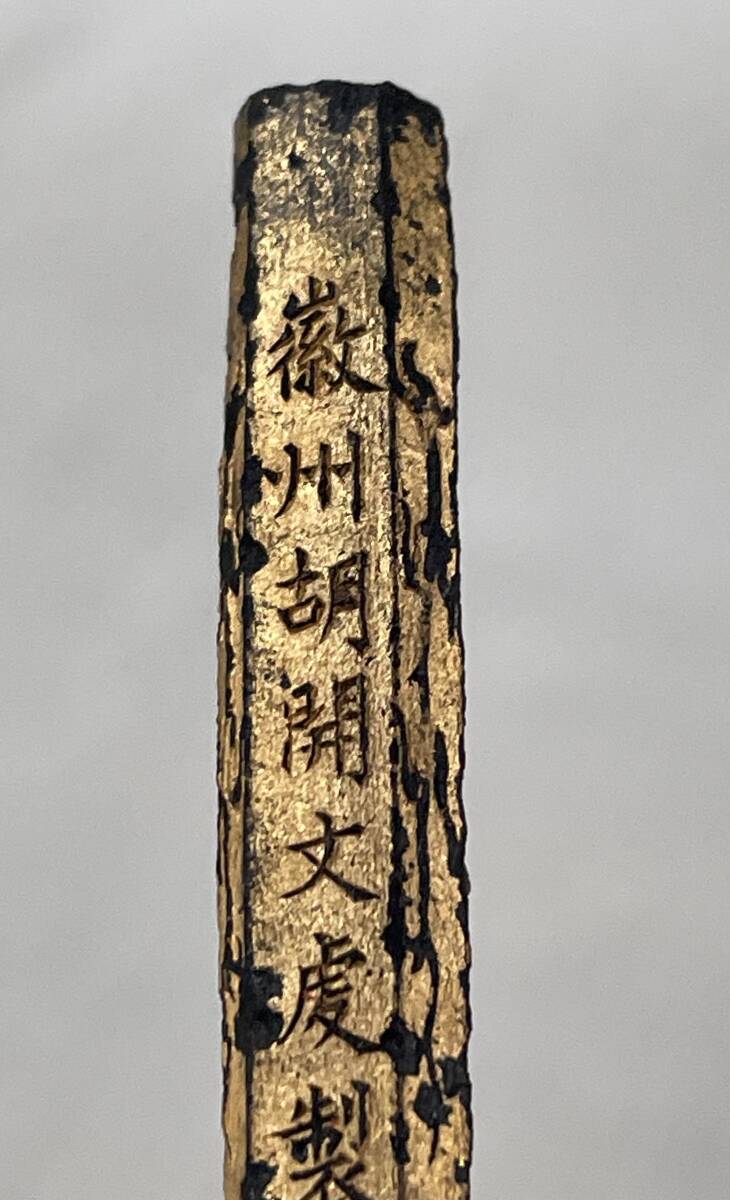 徽州胡開文虔製